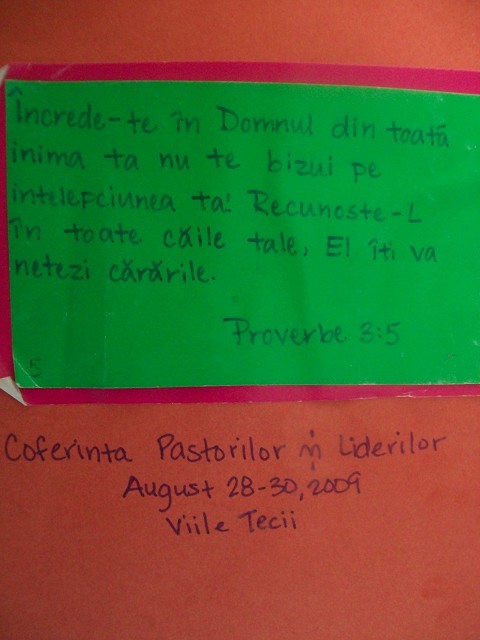 Încrede-te în Domnul din toată
inima ta nu te bizui pe
intelepciunea ta! Recunoste-L
în toate căile tale, El îti va
netezi cărările.
Proverbe 3:5
5
Coferinta Pastorilor și Liderilor
August 28-30, 2009
Viile Tecii